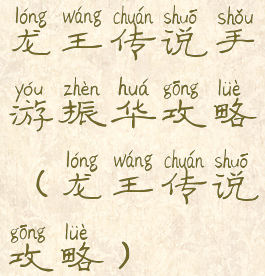 lóng wáng chuán shuō shǒu
龙王传说手
yóu zhèn huá gōng lüè
游振华攻略
lóng wáng chuán shuō
(龙王传说
gōng lüè
攻略)